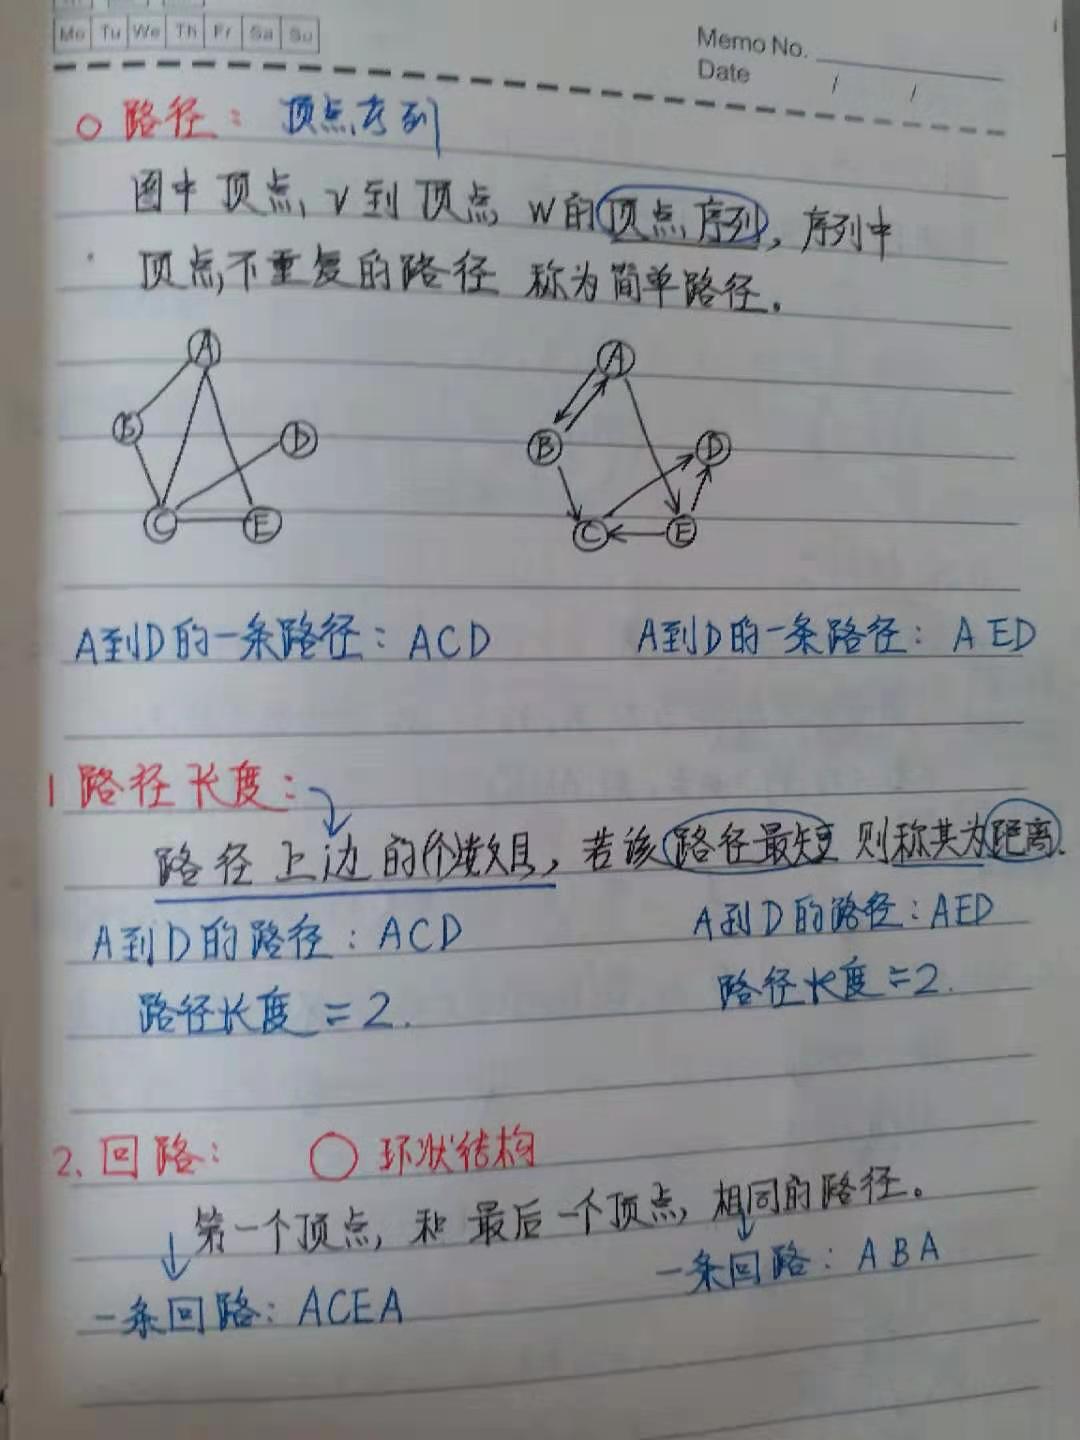 Mo Tu We Th Fr Sa Su
Memo No.
Date / /
○ 路径: 顶点序列
图中顶点 V 到顶点 W 的顶点序列, 序列中
顶点不重复的路径 称为简单路径.
A A
B D B D
C E C E
A到D的一条路径: ACD A到D的一条路径: AED
1 路径长度:
路径上边的个数数目, 若该路径最短 则称其为距离.
A到D的路径: ACD A到D的路径: AED
路径长度 = 2. 路径长度 = 2.
2. 回路: ○ 环状结构
第一个顶点 和 最后一个顶点 相同的路径。
一条回路: ACEA 一条回路: ABA